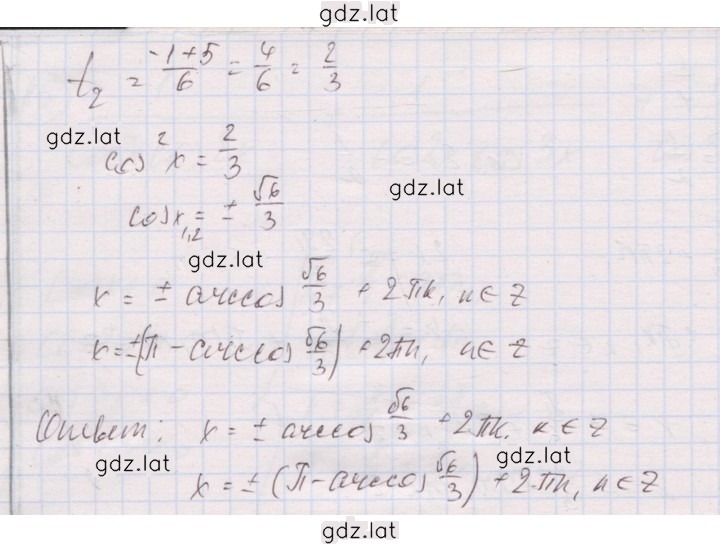 gdz.lat
t₂ = (-1+5)/6 = 4/6 = 2/3
gdz.lat
cos² x = 2/3
gdz.lat
cosx₁,₂ = ± √6/3
gdz.lat
x = ± arccos √6/3 + 2πk, k ∈ Z
x = ±(π - arccos √6/3) + 2πn, n ∈ Z
Ответ: x = ± arccos √6/3 + 2πk, k ∈ Z
gdz.lat
gdz.lat
x = ± (π - arccos √6/3) + 2πn, n ∈ Z
gdz.lat